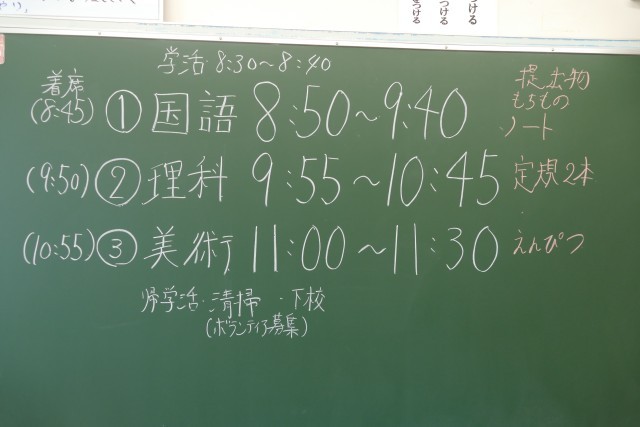 つける
つける
つける
学活・8:30～8:40
着席
提出物
もちもの
(8:45) ① 国語 8:50～9:40 ノート
(9:50) ② 理科 9:55～10:45 定規2本
(10:55) ③ 美術 11:00～11:30 えんぴつ
帰学活・清掃・下校
(ボランティア募集)